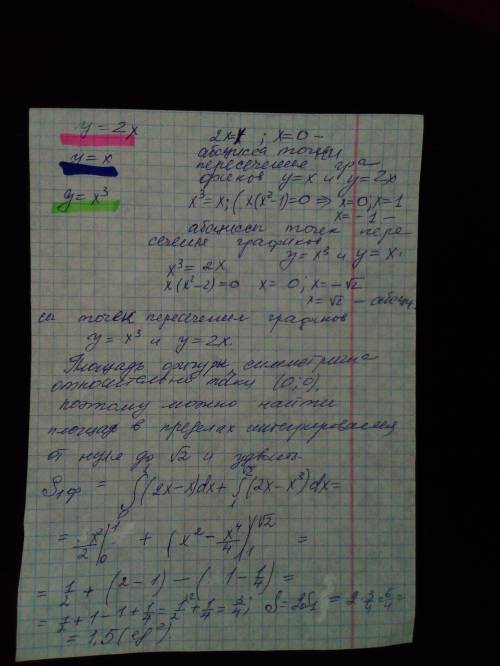 y = 2x
2x=x ; x=0 –
y = x
абсцисса точки
пересечения гра
фиков y=x и y=2x
y = x³
x³ = x; (x(x²-1)=0 ⇒ x=0; x=1
x= -1 –
абсциссы точек пере
сечения графиков
y = x³ и y = x.
x³ = 2x
x(x²-2)=0 x = 0; x=-√2
x=√2 – абсцис
сы точек пересечения графиков
y = x³ и y = 2x.
Площадь фигуры симметрична
относительно точки (0;0),
поэтому можно найти
площадь в пределах интегрирования
от нуля до √2 и удвоить.
S₁ф = ∫₀¹(2x-x)dx + ∫₁^√2(2x-x³)dx=
= x²/2 |₀¹ + (x² - x⁴/4)|₁^√2 =
= 1/2 + (2-1) - (1-1/4) =
= 1/2+1-1+1/4= 1/2+1/4= 3/4; S=2S₁ = 2·3/4=6/4=
= 1,5 (ед²)